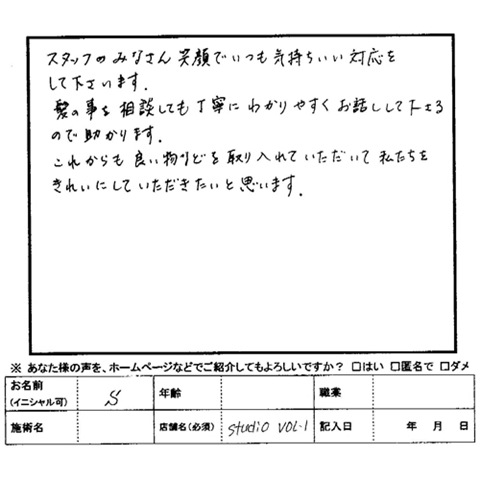 スタッフのみなさん笑顔でいつも気持ちいい対応を
して下さいます.
髪の事を相談しても丁寧にわかりやすくお話しして下さる
ので助かります.
これからも良い物などを取り入れていただいて私たちを
きれいにしていただきたいと思います.
※ あなた様の声を、ホームページなどでご紹介してもよろしいですか？ □はい □匿名で □ダメ
お名前 (イニシャル可) S 年齢 職業
施術名 店舗名(必須) studio VOL・1 記入日 年 月 日